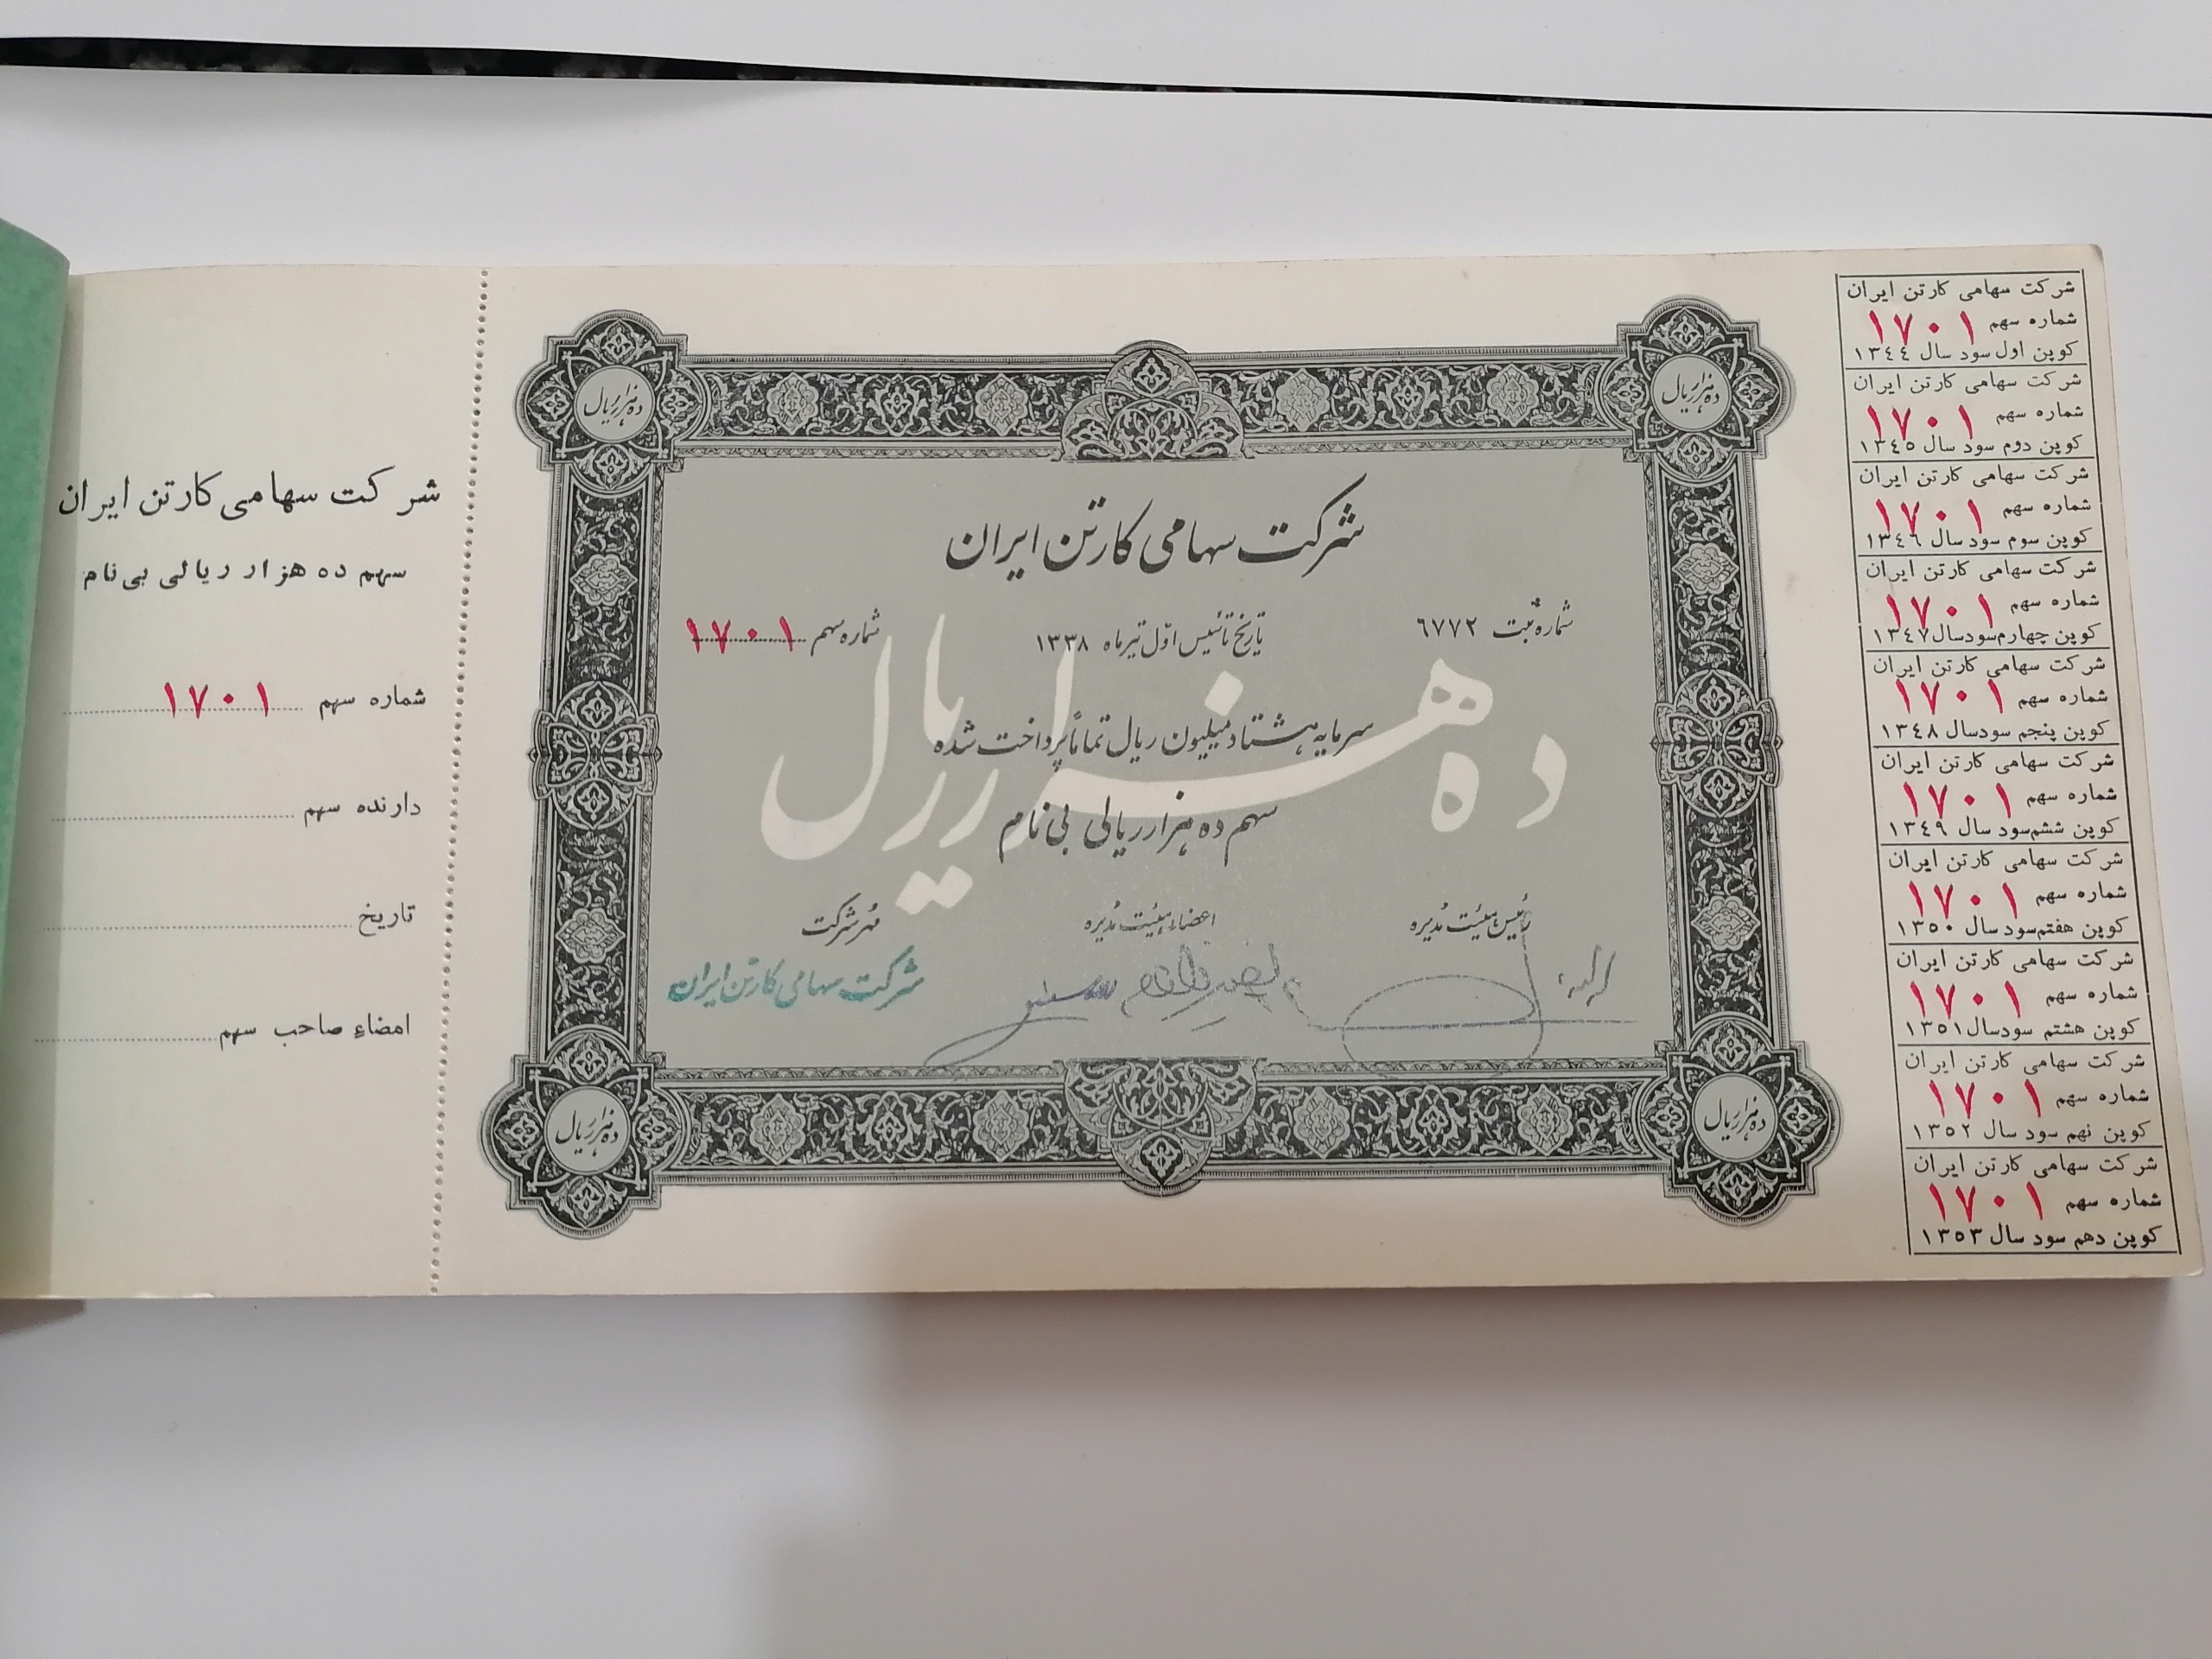 شرکت سهامی کارتن ایران
شماره سهم ۱۷۰۱
کوپن اول سود سال ۱۳٤٤
شرکت سهامی کارتن ایران
شماره سهم ۱۷۰۱
کوپن دوم سود سال ۱۳٤٥
شرکت سهامی کارتن ایران
شماره سهم ۱۷۰۱
کوپن سوم سود سال ۱۳٤٦
شرکت سهامی کارتن ایران
شماره سهم ۱۷۰۱
کوپن چهارم سود سال ۱۳٤۷
شرکت سهامی کارتن ایران
شماره سهم ۱۷۰۱
کوپن پنجم سود سال ۱۳٤۸
شرکت سهامی کارتن ایران
شماره سهم ۱۷۰۱
کوپن ششم سود سال ۱۳٤۹
شرکت سهامی کارتن ایران
شماره سهم ۱۷۰۱
کوپن هفتم سود سال ۱۳٥۰
شرکت سهامی کارتن ایران
شماره سهم ۱۷۰۱
کوپن هشتم سود سال ۱۳٥۱
شرکت سهامی کارتن ایران
شماره سهم ۱۷۰۱
کوپن نهم سود سال ۱۳٥۲
شرکت سهامی کارتن ایران
شماره سهم ۱۷۰۱
کوپن دهم سود سال ۱۳٥۳
ده هزار ریال
ده هزار ریال
شرکت سهامی کارتن ایران
شماره ثبت ٦۷۷۲ تاریخ تأسیس اوّل تیر ماه ۱۳۳۸ شماره سهم ۱۷۰۱
ده هزار ریال
سرمایه هشتاد میلیون ریال تماماً پرداخت شده
سهم ده هزار ریالی بی نام
رئیس هیئت مُدیره اعضاء هیئت مُدیره مُهر شرکت
شرکت سهامی کارتن ایران
ده هزار ریال
ده هزار ریال
شرکت سهامی کارتن ایران
سهم ده هزار ریالی بی نام
شماره سهم ۱۷۰۱
دارنده سهم
تاریخ
امضاء صاحب سهم